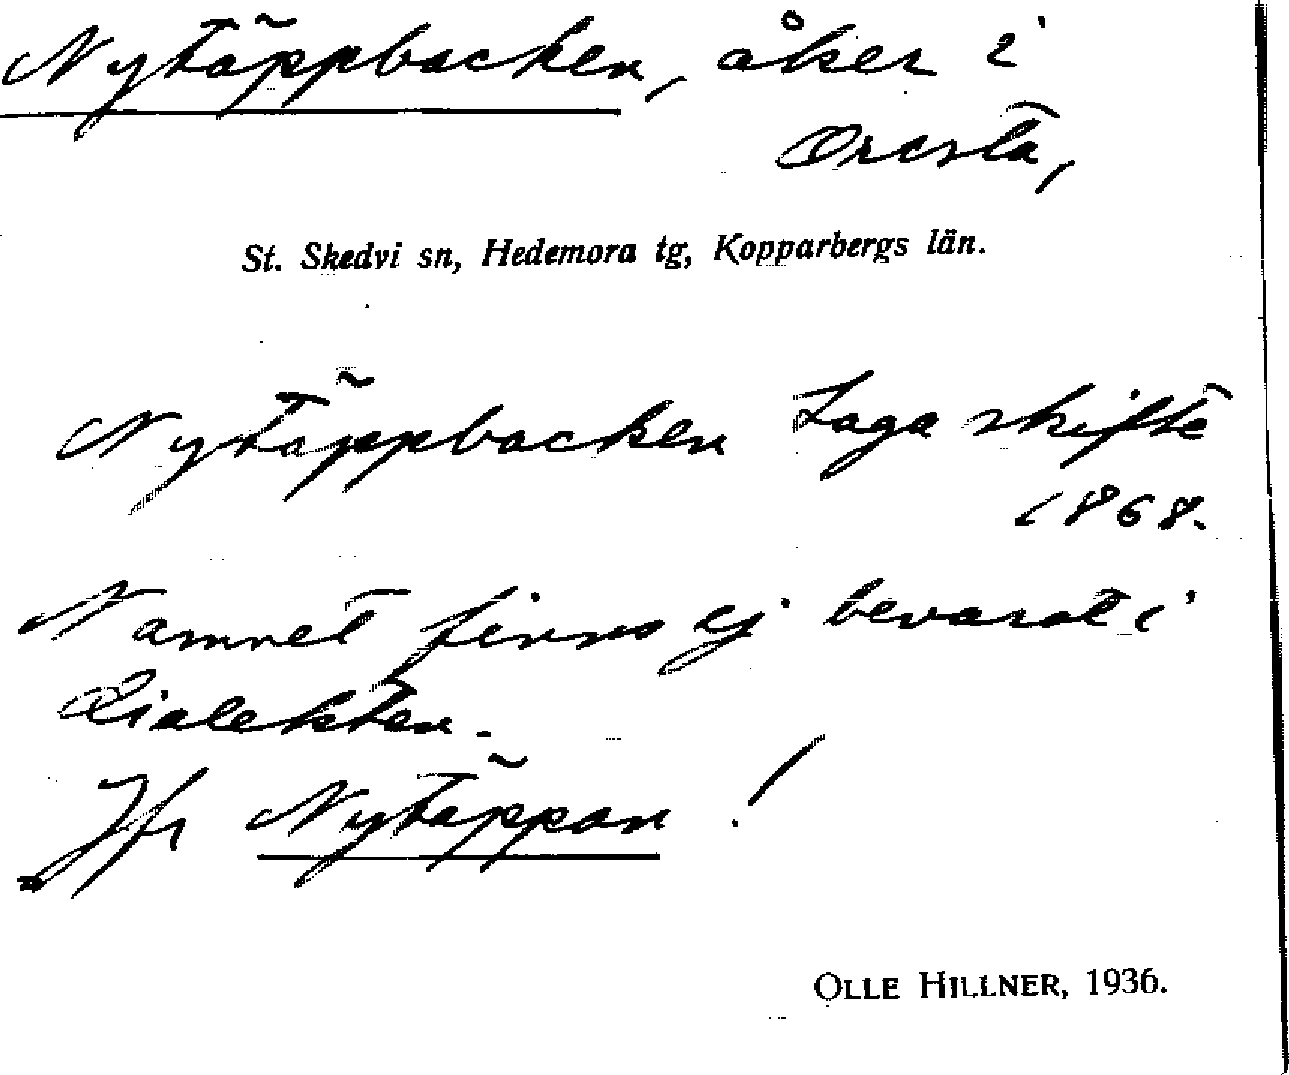 Nytäppbacken, åker i
Orcsta,
St. Skedvi sn, Hedemora tg, Kopparbergs län.
Nytäppbacken Laga skifte
1868.
Namnet finns ej bevarat i
dialekten.
Jfr Nytäppan!
OLLE HILLNER, 1936.